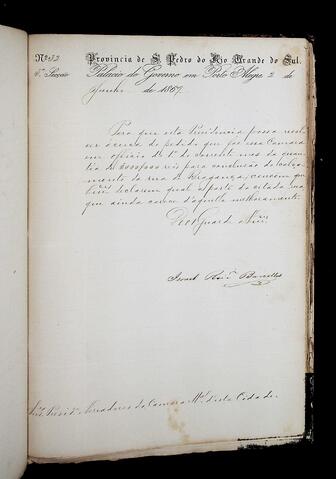 Nº 32 Provincia de S. Pedro do Rio Grande do Sul.
4ª Secção Palacio do Governo em Porto Alegre 2 de
de 1867.
Para que esta Presidencia possa resol-
ver á cerca do pedido que faz essa Camara
em officio do 1º do corrente mez da quan-
tia de reis para conclusão do calça-
mento da rua de Bragança, convém que
declarem qual a parte da citada rua
que ainda carece d'aquelle melhoramento.
Deos Guarde a
Israel Roiz Barcellos
Snrs. Presidte. Vereadores da Camara Mal. desta Cidade.